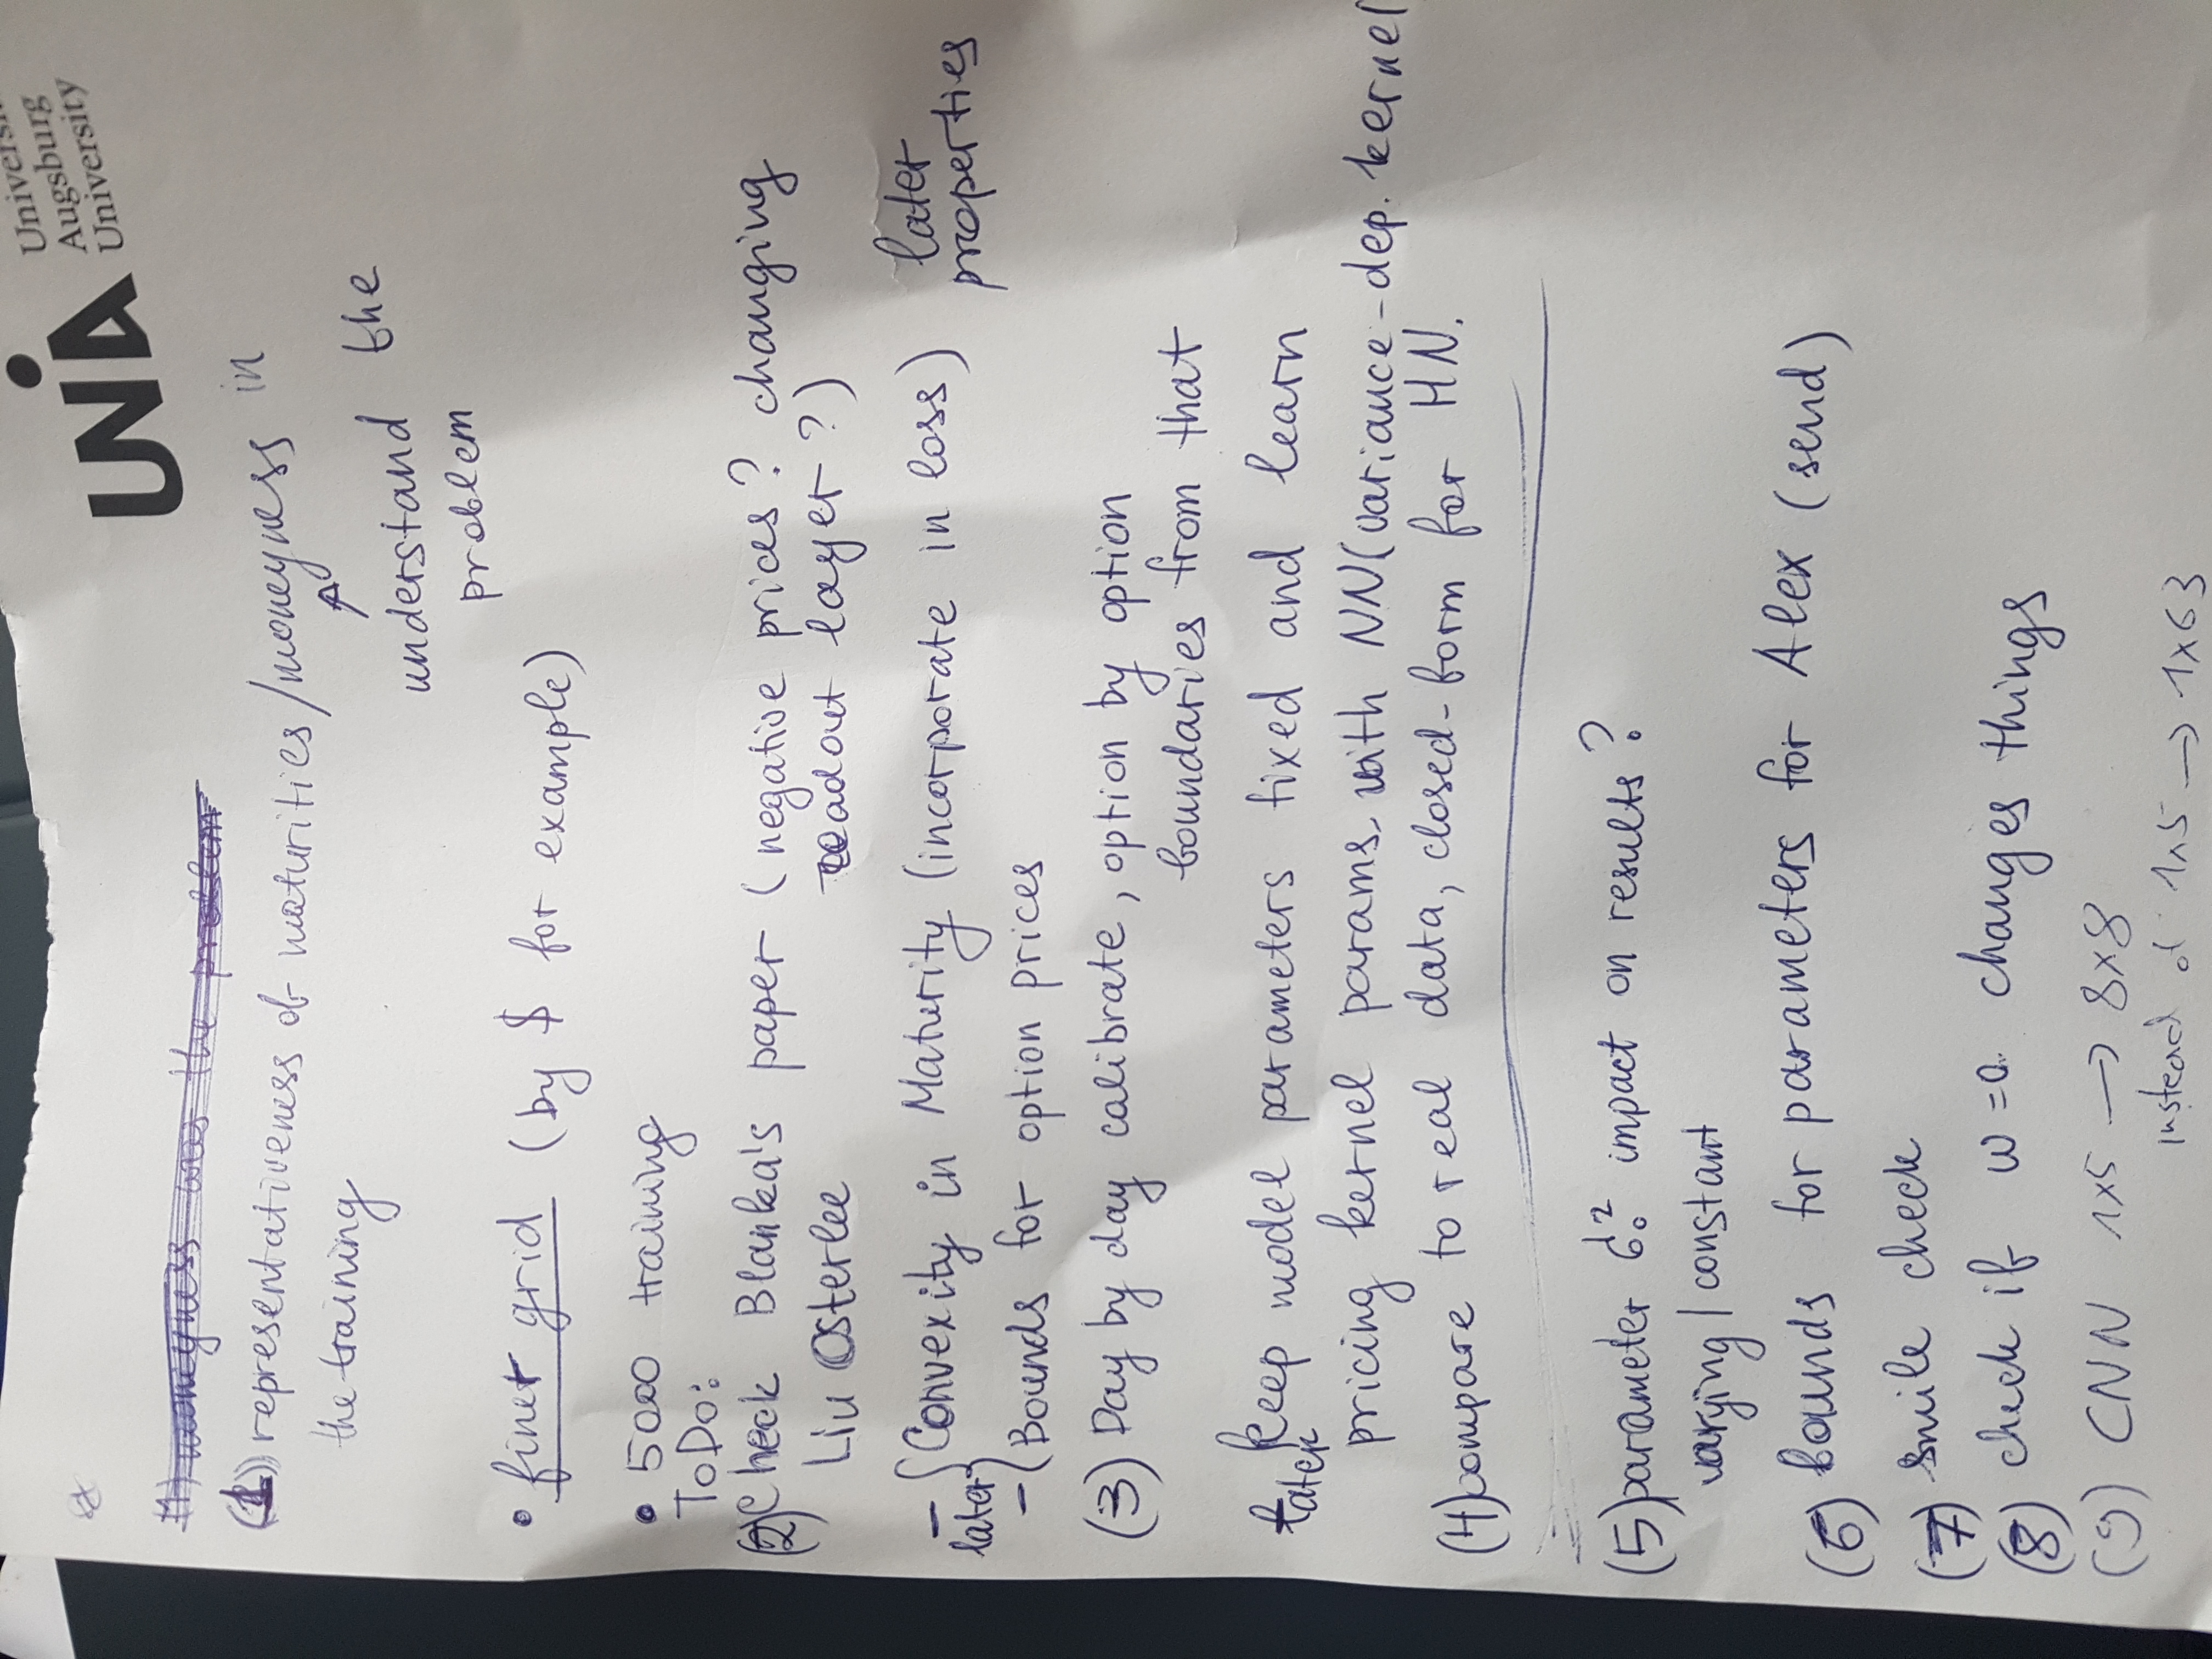 Universi
Augsburg
University
UNIA
(1) moneyness was the problem
(1) representativeness of maturities/moneyness in
the training
understand the
problem
• finer grid (by $ for example)
• 5000 training
ToDo:
(2) Check Blanka's paper (negative prices? changing
Liu Osterlee readout layer?)
- Convexity in Maturity (incorporate in loss) later
later properties
- Bounds for option prices
(3) Day by day calibrate, option by option
boundaries from that
later Keep model parameters fixed and learn
pricing kernel params. with NN (variance-dep. kernel
(4) compare to real data, closed-form for HN.
(5) parameter impact on results?
varying/constant
(6) bounds for parameters for Alex (send)
(7) smile check
(8) check if w=0 changes things
(9) CNN 1x5 → 8x8
instead of 1x5 → 1x63